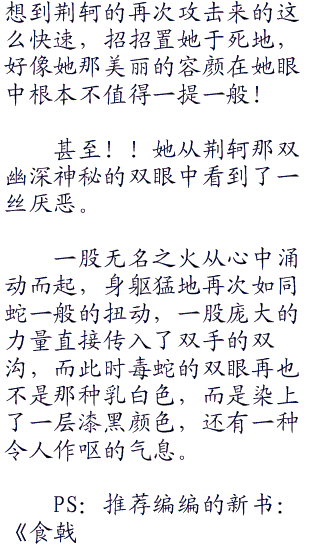 想到荆轲的再次攻击来的这
么快速，招招置她于死地，
好像她那美丽的容颜在她眼
中根本不值得一提一般！
甚至！！她从荆轲那双
幽深神秘的双眼中看到了一
丝厌恶。
一股无名之火从心中涌
动而起，身躯猛地再次如同
蛇一般的扭动，一股庞大的
力量直接传入了双手的双
沟，而此时毒蛇的双眼再也
不是那种乳白色，而是染上
了一层漆黑颜色，还有一种
令人作呕的气息。
PS：推荐编编的新书：
《食戟